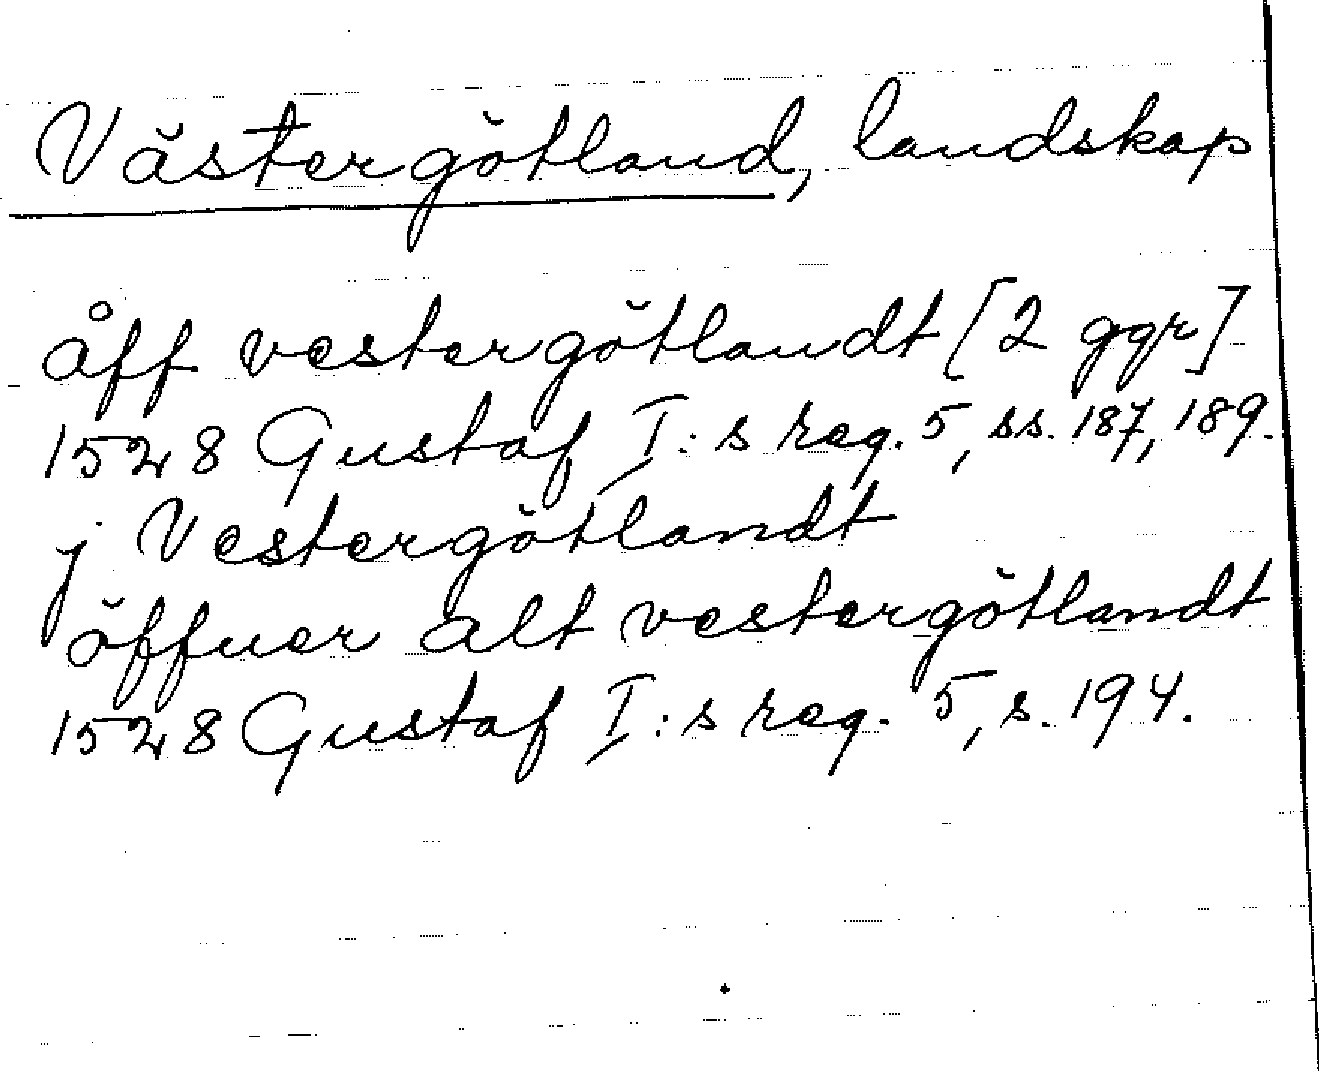 Västergötland, landskap
åff vestergötlandt [2 ggr]
1528 Gustaf I:s reg. 5, ss. 187, 189.
j Vestergötlandt
öffuer alt vestergötlandt
1528 Gustaf I:s reg. 5, s. 194.